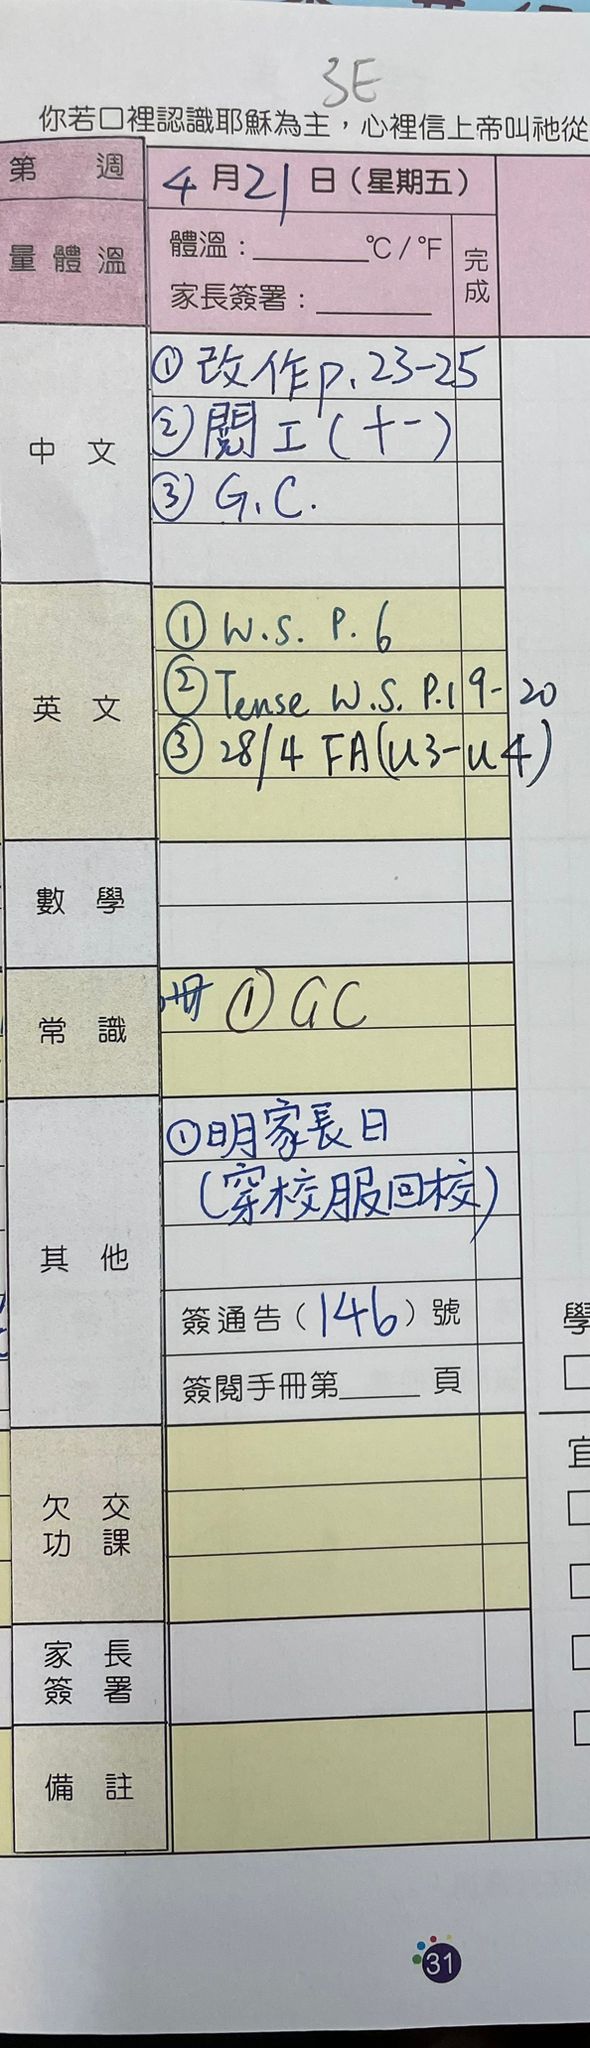 3E
你若口裡認識耶穌為主，心裡信上帝叫祂從
第 週
4月21日（星期五）
量體溫
體溫：______℃/℉
家長簽署：______
完成
中文
① 改作p.23-25
② 閱工(十一)
③ G.C.
英文
① W.S. P.6
② Tense W.S. P.19-20
③ 28/4 FA(U3-U4)
數學
常識
冊 ① GC
其他
①明家長日
(穿校服回校)
簽通告（146）號
簽閱手冊第______頁
欠交功課
家長簽署
備註
學
宜
31